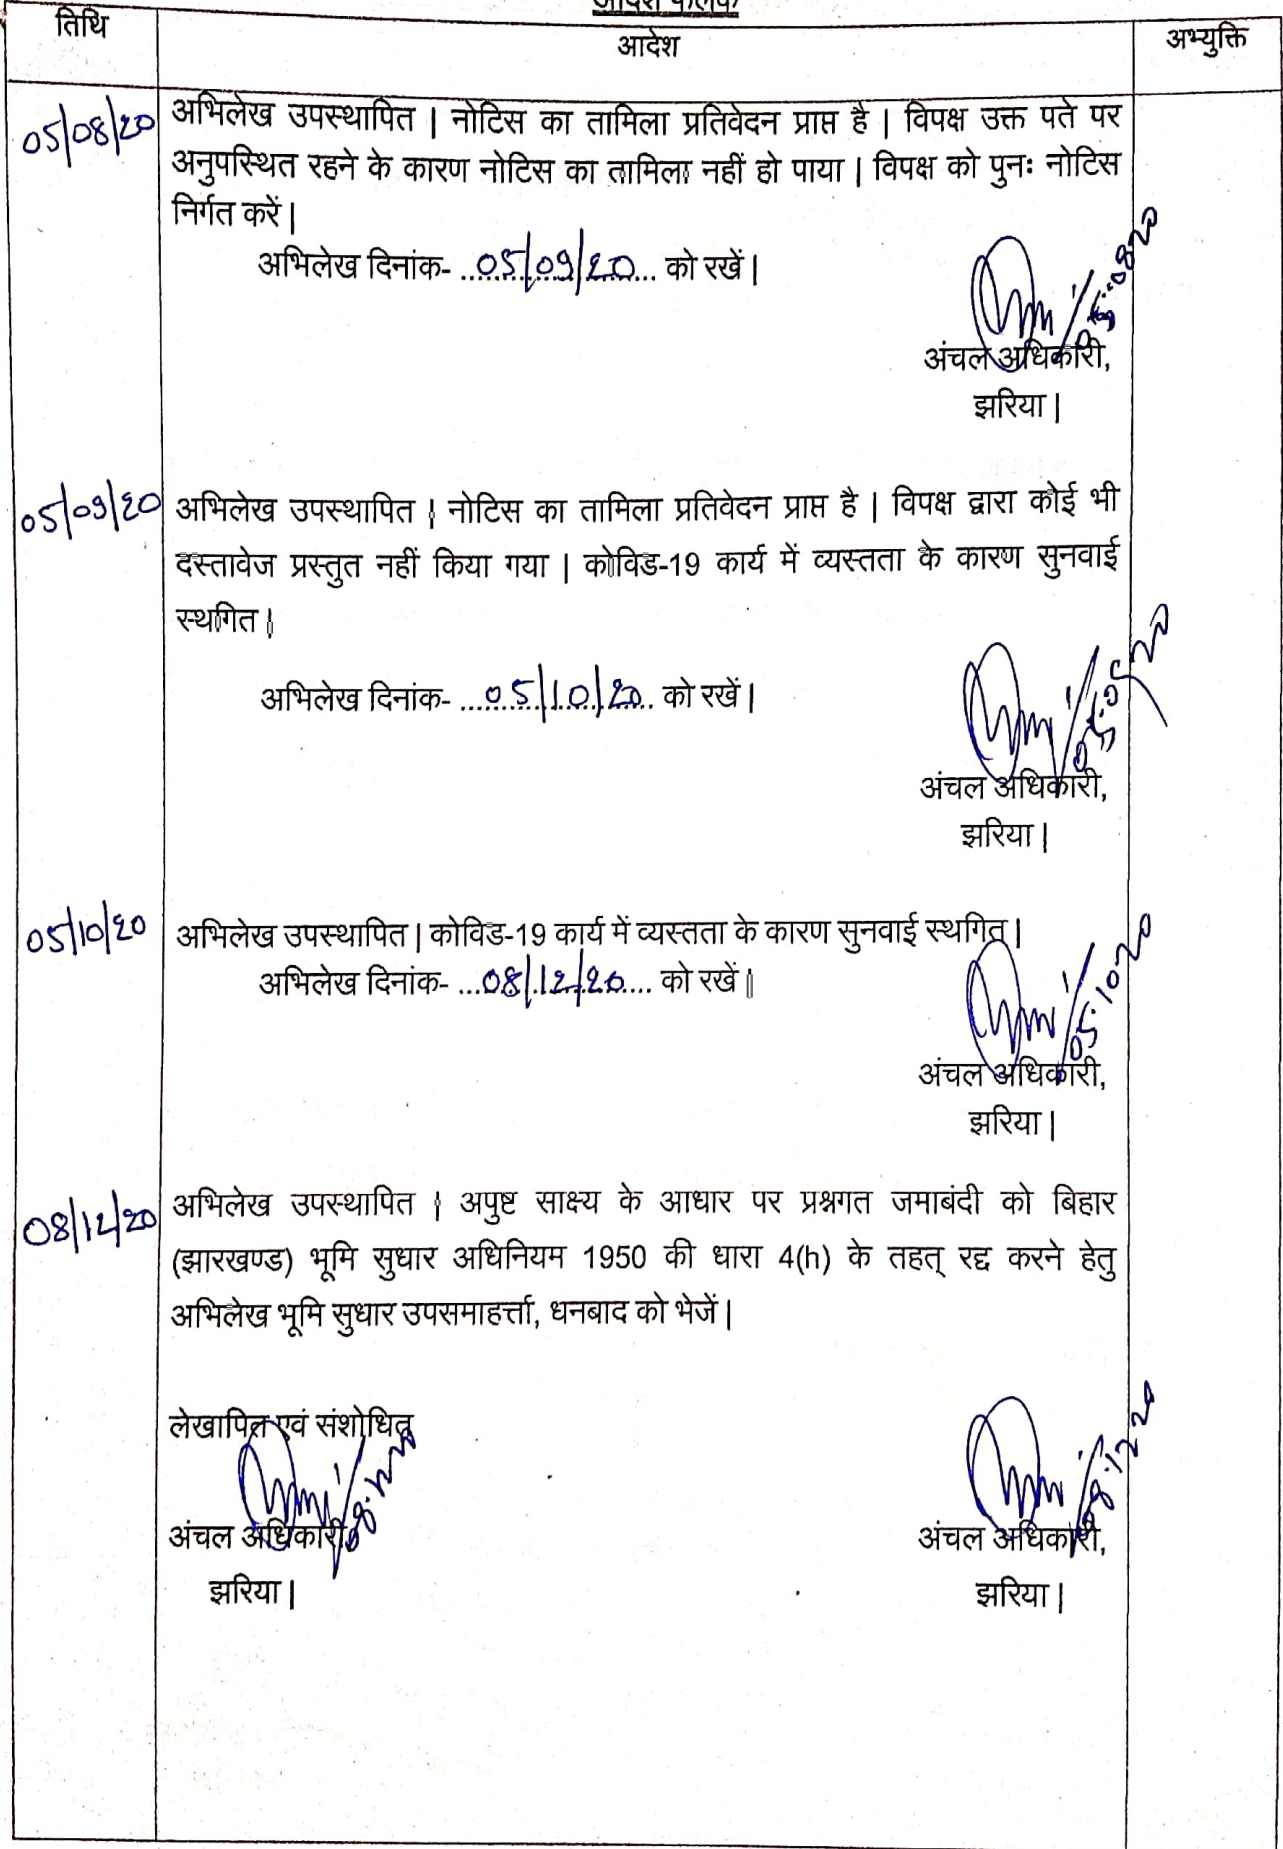 आदेश फलक
तिथि
आदेश
अभ्युक्ति
05/08/20
अभिलेख उपस्थापित | नोटिस का तामिला प्रतिवेदन प्राप्त है | विपक्ष उक्त पते पर
अनुपस्थित रहने के कारण नोटिस का तामिला नहीं हो पाया | विपक्ष को पुनः नोटिस
निर्गत करें |
अभिलेख दिनांक- ...05/09/20... को रखें |
05.0820
अंचल अधिकारी,
झरिया |
05/09/20
अभिलेख उपस्थापित | नोटिस का तामिला प्रतिवेदन प्राप्त है | विपक्ष द्वारा कोई भी
दस्तावेज प्रस्तुत नहीं किया गया | कोविड-19 कार्य में व्यस्तता के कारण सुनवाई
स्थगित |
अभिलेख दिनांक- ...05/10/20... को रखें |
अंचल अधिकारी,
झरिया |
05/10/20
अभिलेख उपस्थापित | कोविड-19 कार्य में व्यस्तता के कारण सुनवाई स्थगित |
अभिलेख दिनांक- ...08/12/20... को रखें |
05.10 20
अंचल अधिकारी,
झरिया |
08/12/20
अभिलेख उपस्थापित | अपुष्ट साक्ष्य के आधार पर प्रश्नगत जमाबंदी को बिहार
(झारखण्ड) भूमि सुधार अधिनियम 1950 की धारा 4(h) के तहत् रद्द करने हेतु
अभिलेख भूमि सुधार उपसमाहर्त्ता, धनबाद को भेजें |
लेखापित एवं संशोधित
08.12 20
अंचल अधिकारी,
झरिया |
अंचल अधिकारी,
झरिया |